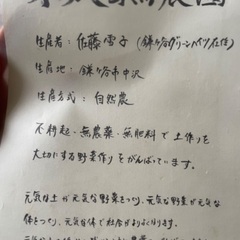 生産者：佐藤雪子（鎌ヶ谷グリーンハイツ在住）
生産地：鎌ヶ谷市中沢
生産方式：自然農
不耕起・無農薬・無肥料で土作りを
大切にする野菜作りをがんばっています。
元気な土が元気な野菜をつくり、元気な野菜が元気な
体をつくり、元気な体で社会がよりよくなります。